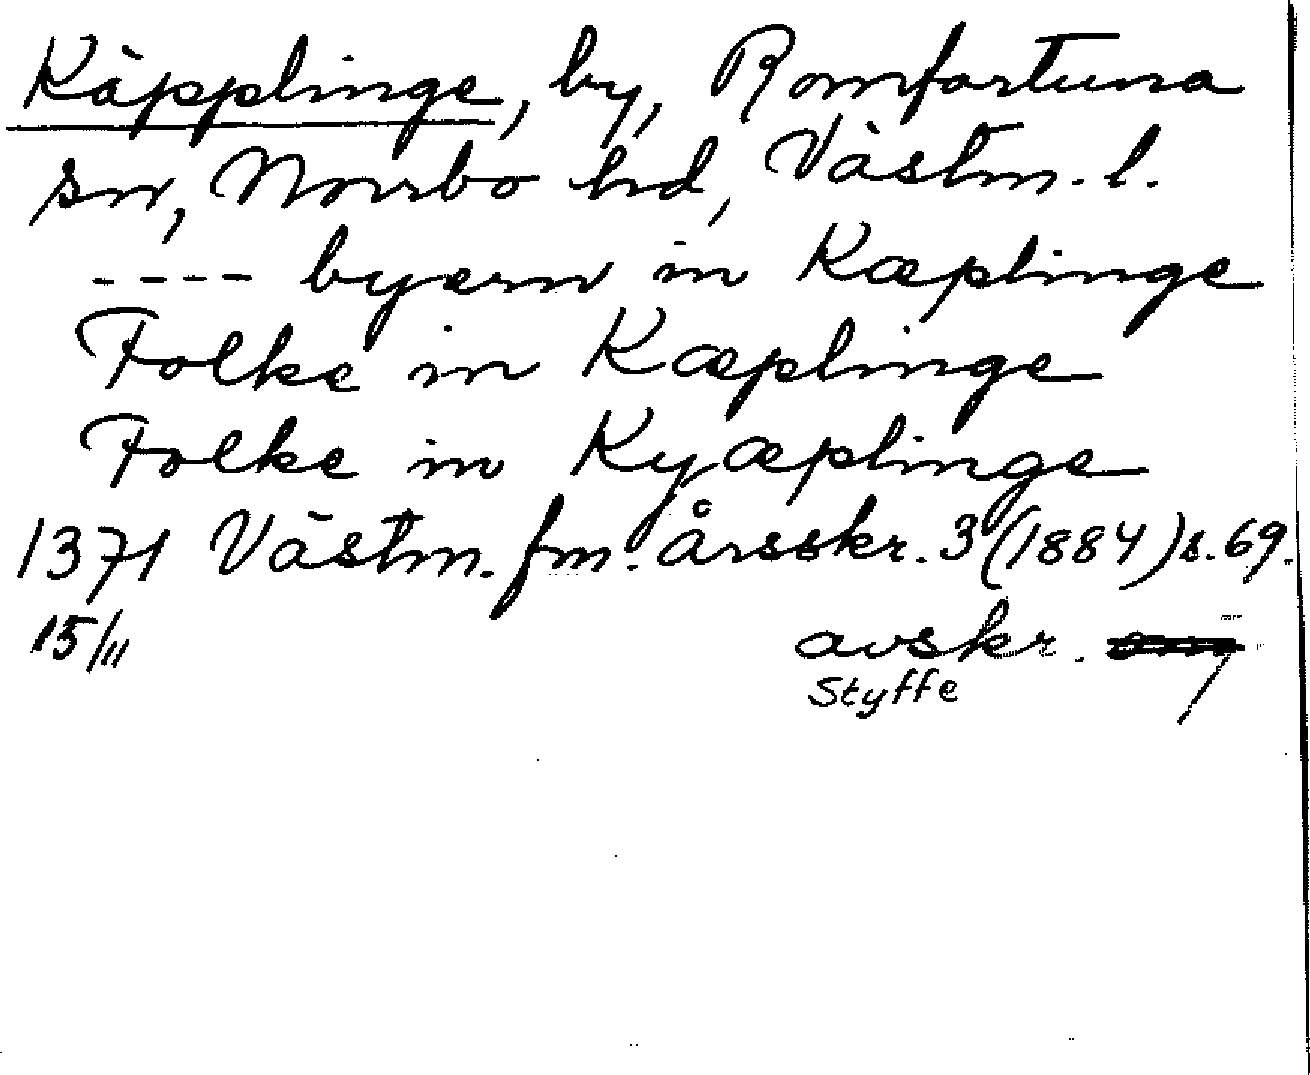 Käpplinge, by, Romfartuna
sn, Norrbo hd, Västm. l.
---- byærn in Kæplinge
Folke in Kæplinge
Folke in Kyæplinge
1371 Västm. fm. årsskr. 3 (1884) s. 69.
15/11 avskr.
Styffe